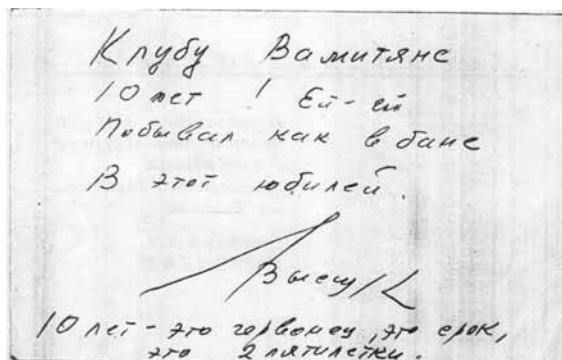 Клубу Вамитяне
10 лет! Ей-ей
Побывал как в бане
В этот юбилей.
10 лет - это червонец, это срок,
это 2 пятилетки.